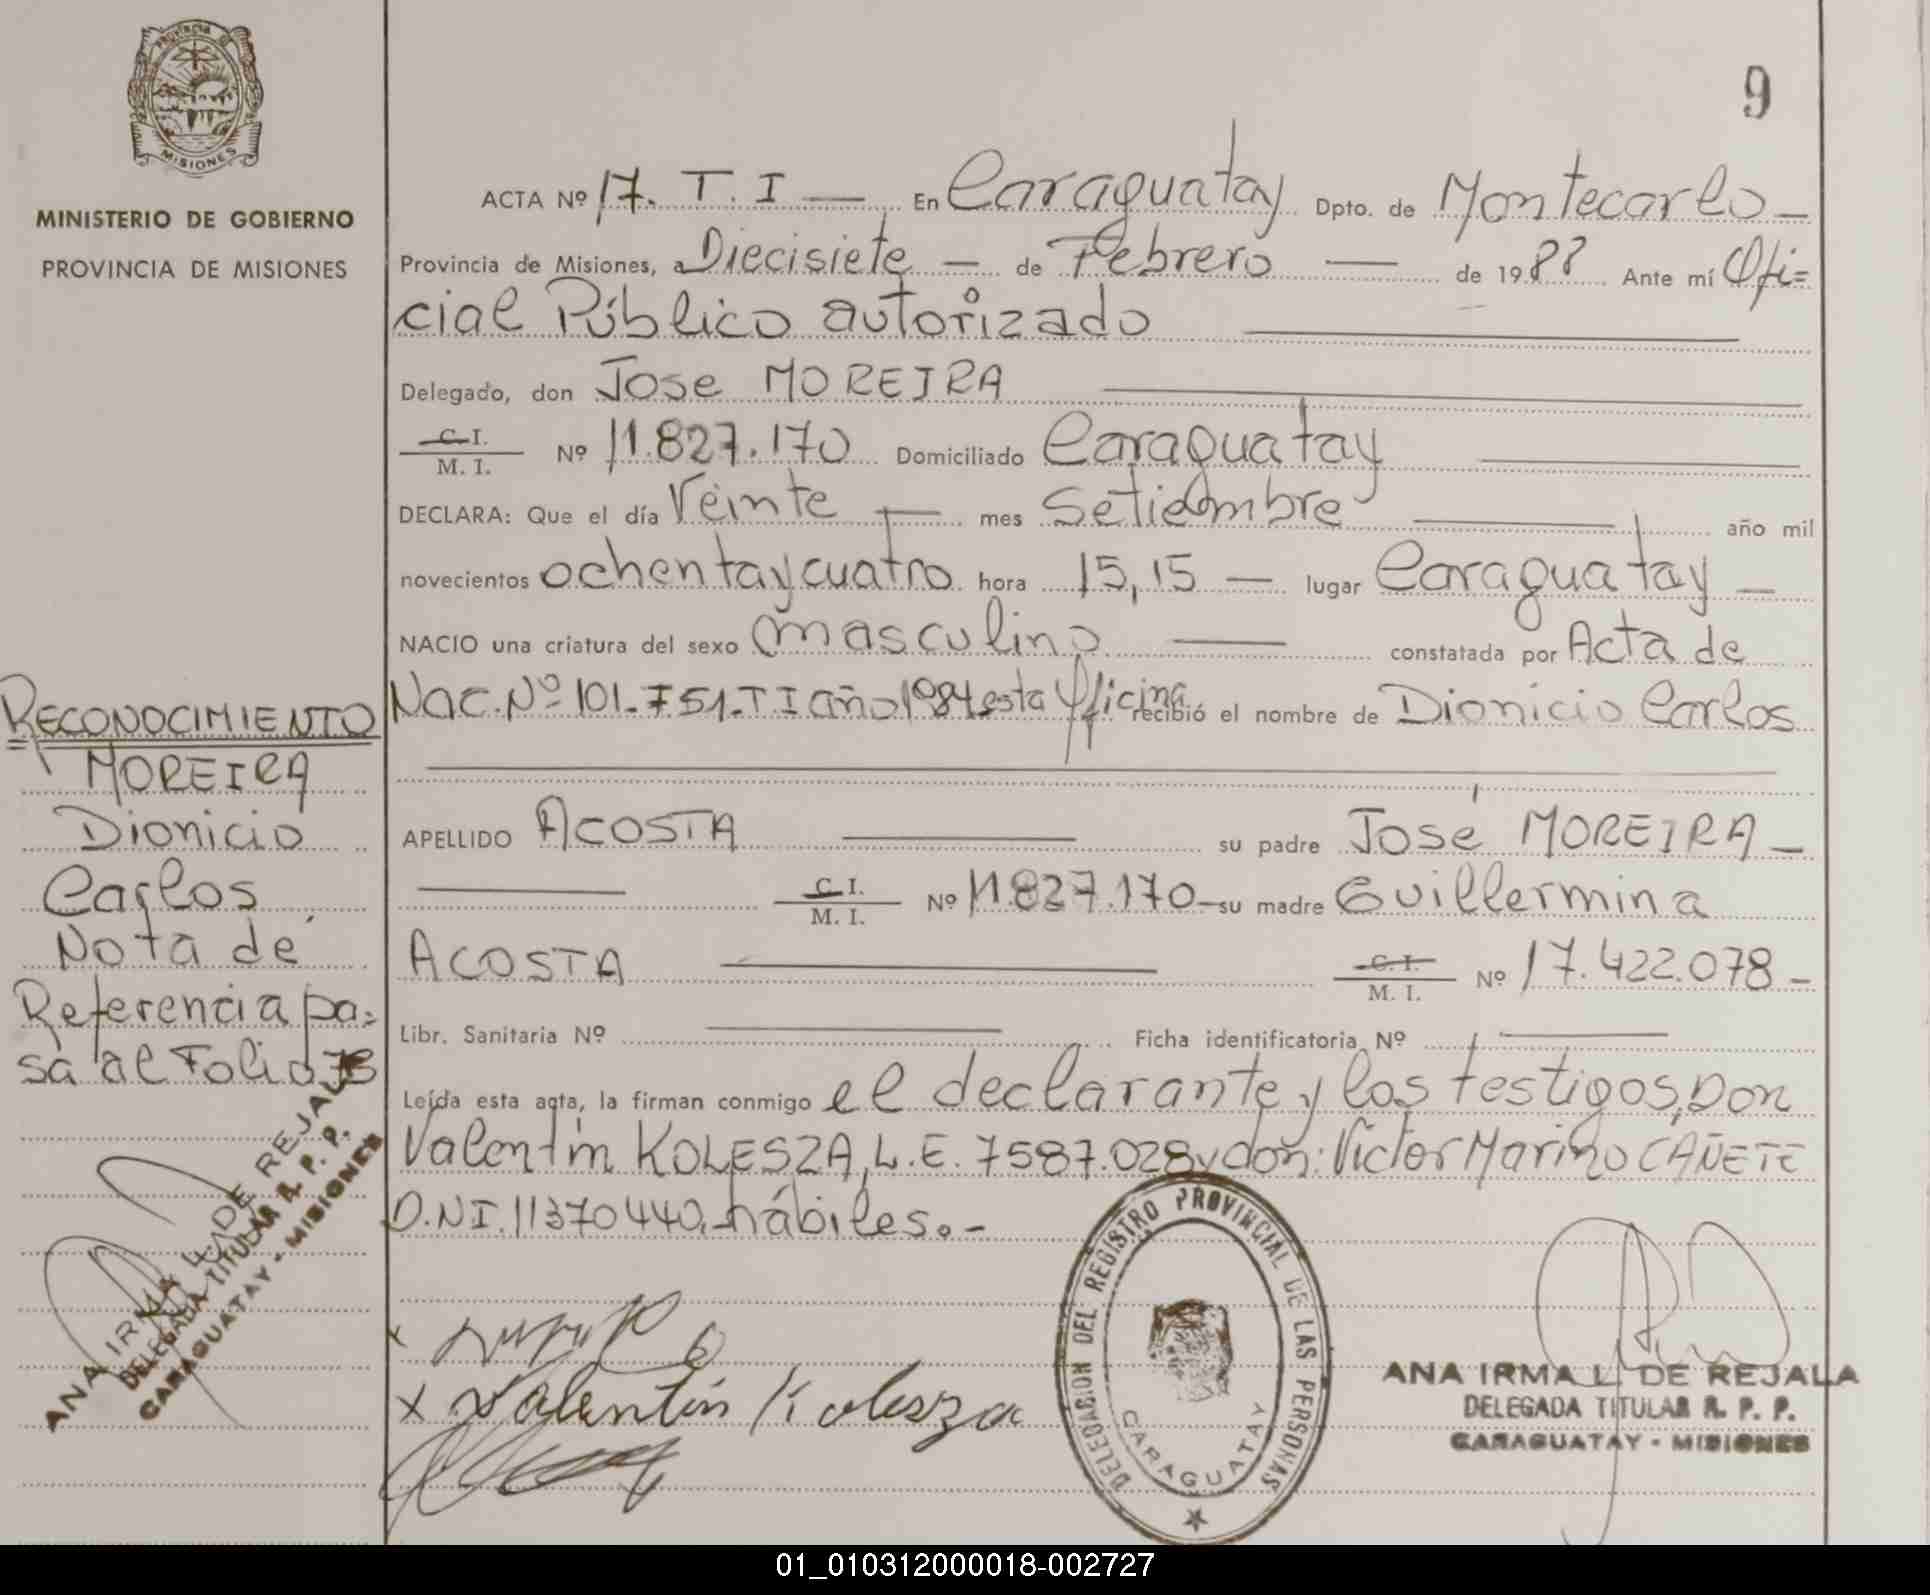 9
Provincia de
MISIONES
MINISTERIO DE GOBIERNO
PROVINCIA DE MISIONES
ACTA Nº 17. T. I — En Caraguatay Dpto. de Montecarlo —
Provincia de Misiones, a Diecisiete — de Febrero — de 198 Ante mí Ofi=
cial Público autorizado
Delegado, don Jose MOREIRA
C. I.
M. I. Nº 11.827.170 Domiciliado Caraguatay
DECLARA: Que el día Veinte — mes Setiembre — año mil
novecientos ochentaycuatro hora 15,15 — lugar Caraguatay —
NACIO una criatura del sexo masculino — constatada por Acta de
Nac. Nº 101-F51-T I año 1984 esta Oficina recibió el nombre de Dionicio Carlos
APELLIDO ACOSTA — su padre José MOREIRA —
C. I.
M. I. Nº 11.827.170 — su madre Guillermina
ACOSTA — C. I.
M. I. Nº 17.422.078 -
Libr. Sanitaria Nº — Ficha identificatoria Nº —
Leída esta acta, la firman conmigo el declarante y los testigos, Don
Valentín KOLESZA, L.E. 7587.028 y don: Victor Marino CAÑETE
D.N.I. 11370440, hábiles.-
RECONOCIMIENTO
MOREIRA
Dionicio
Carlos
Nota de
Referencia pa=
sa al Folio
ANA IRMA L. DE REJALA
DELEGADA TITULAR R. P. P.
CARAGUATAY - MISIONES
x Valentín Kolesza
DELEGACION DEL REGISTRO PROVINCIAL DE LAS PERSONAS
CARAGUATAY
ANA IRMA L. DE REJALA
DELEGADA TITULAR R. P. P.
CARAGUATAY - MISIONES
01_010312000018-002727